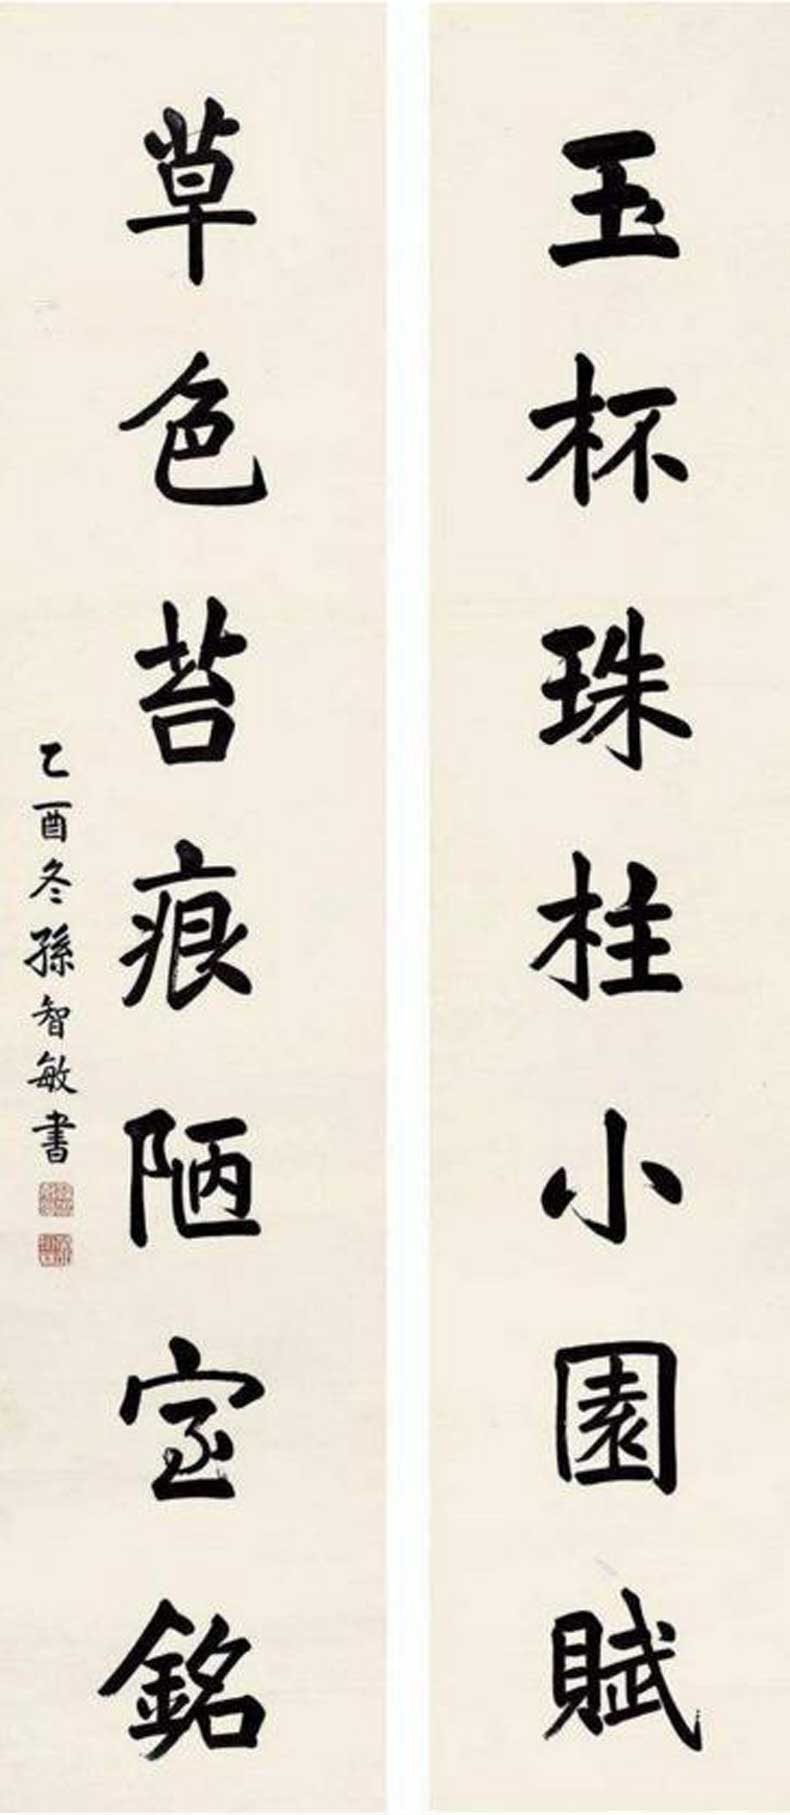 玉杯珠柱小園賦
草色苔痕陋室銘
乙酉冬孫智敏書